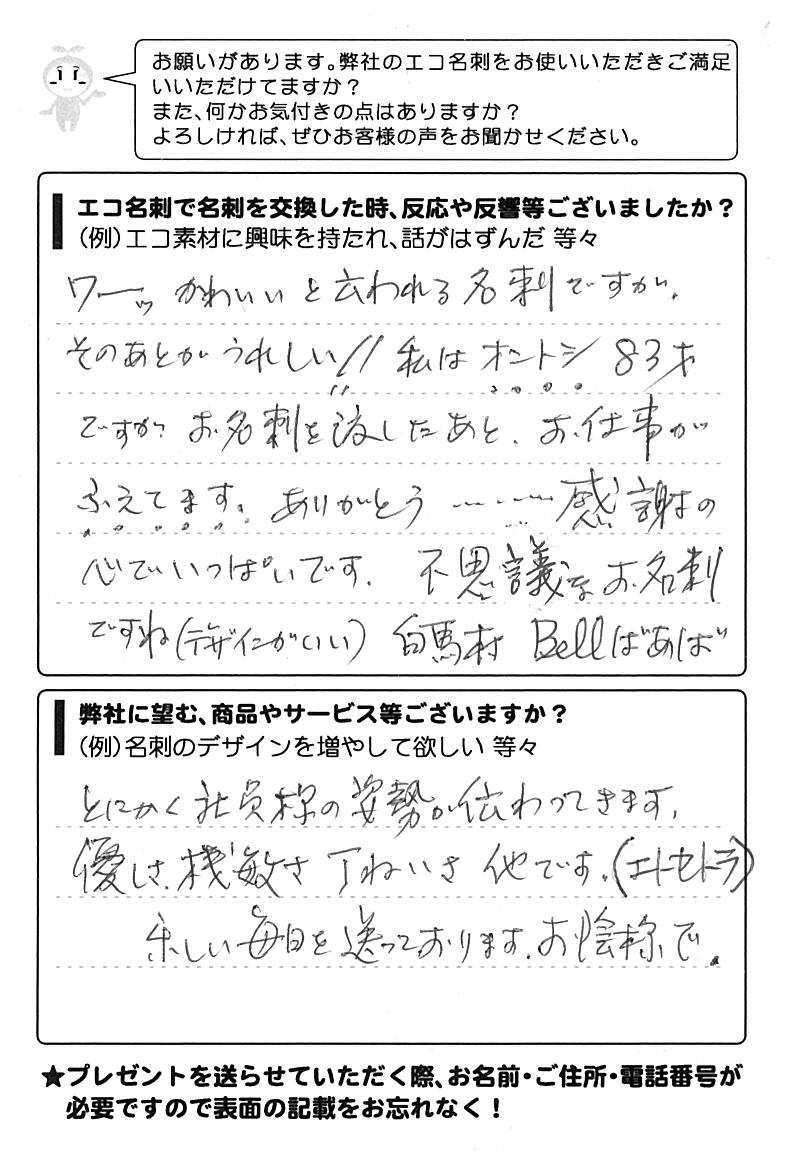 お願いがあります。弊社のエコ名刺をお使いいただきご満足
いいただけてますか？
また、何かお気付きの点はありますか？
よろしければ、ぜひお客様の声をお聞かせください。
エコ名刺で名刺を交換した時、反応や反響等ございましたか？
（例）エコ素材に興味を持たれ、話がはずんだ 等々
ワーッ かわいいと云われる名刺ですが、
そのあとがうれしい!! 私はオントシ 83才
ですが お名刺を渡したあと、お仕事が
ふえてます。ありがとう………感謝の
心でいっぱいです。不思議なお名刺
ですね(デザインがいい) 白馬村 Bellばあば
弊社に望む、商品やサービス等ございますか？
（例）名刺のデザインを増やして欲しい 等々
とにかく社員様の姿勢が伝わってきます。
優しさ、機敏さ 丁ねいさ 他です。(エトセトラ)
楽しい毎日を送っております。お陰様で。
★プレゼントを送らせていただく際、お名前・ご住所・電話番号が
必要ですので表面の記載をお忘れなく！